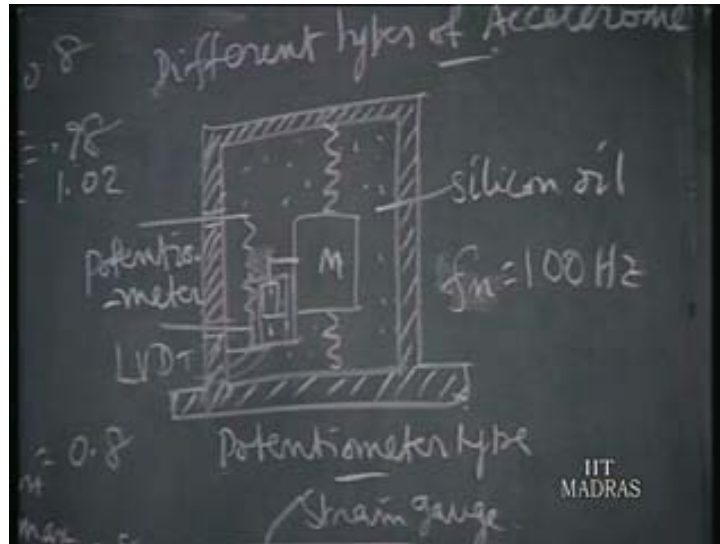 Different types of Accelerome
0.8
= .98
1.02
silicon oil
Potentio-
-meter
M
fn = 100 Hz
LVDT
= 0.8
Potentiometer type
IIT
MADRAS
max
Strain gauge